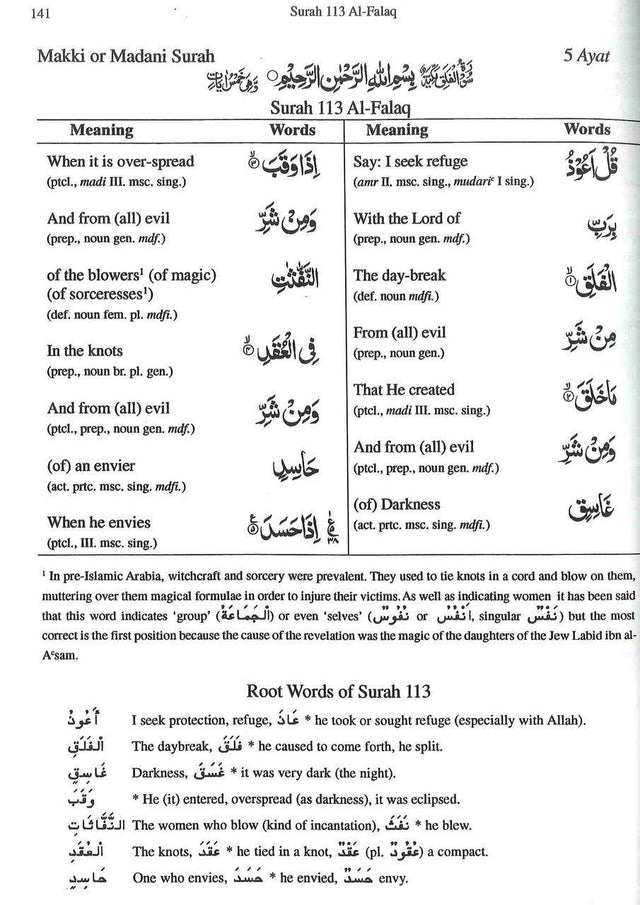 141
Surah 113 Al-Falaq
Makki or Madani Surah
بِسْمِ اللّٰهِ الرَّحْمٰنِ الرَّحِيْمِ
5 Ayat
Surah 113 Al-Falaq
Meaning Words Meaning Words
Say: I seek refuge قُلْ اَعُوْذُ
(amr II. msc. sing., mudariᶜ I sing.)
With the Lord of بِرَبِّ
(prep., noun gen. mdf.)
The day-break الْفَلَقِ ۝١
(def. noun mdfi.)
From (all) evil مِنْ شَرِّ
(prep., noun gen.)
That He created مَاخَلَقَ ۝٢
(ptcl., madi III. msc. sing.)
And from (all) evil وَمِنْ شَرِّ
(ptcl., prep., noun gen. mdf.)
(of) Darkness غَاسِقٍ
(act. prtc. msc. sing. mdfi.)
When it is over-spread اِذَا وَقَبَ ۝٣
(ptcl., madi III. msc. sing.)
And from (all) evil وَمِنْ شَرِّ
(prep., noun gen. mdf.)
of the blowers¹ (of magic) النَّفّٰثٰتِ
(of sorceresses¹)
(def. noun fem. pl. mdfi.)
In the knots فِى الْعُقَدِ ۝٤
(prep., noun br. pl. gen.)
And from (all) evil وَمِنْ شَرِّ
(ptcl., prep., noun gen. mdf.)
(of) an envier حَاسِدٍ
(act. prtc. msc. sing. mdfi.)
When he envies اِذَا حَسَدَ ۝٥
(ptcl., III. msc. sing.)
¹ In pre-Islamic Arabia, witchcraft and sorcery were prevalent. They used to tie knots in a cord and blow on them,
muttering over them magical formulae in order to injure their victims. As well as indicating women it has been said
that this word indicates ‘group’ (اَلْجَمَاعَةُ) or even ‘selves’ (نُفُوْسٌ or اَنْفُسٌ, singular نَفْسٌ) but the most
correct is the first position because the cause of the revelation was the magic of the daughters of the Jew Labid ibn al-
Aᶜsam.
Root Words of Surah 113
أَعُوذُ I seek protection, refuge, عَاذَ * he took or sought refuge (especially with Allah).
الْفَلَقِ The daybreak, فَلَقَ * he caused to come forth, he split.
غَاسِقٍ Darkness, غَسَقَ * it was very dark (the night).
وَقَبَ * He (it) entered, overspread (as darkness), it was eclipsed.
النَّفَّاثَاتِ The women who blow (kind of incantation), نَفَثَ * he blew.
الْعُقَدِ The knots, عَقَدَ * he tied in a knot, عَقْدٌ (pl. عُقُودٌ) a compact.
حَاسِدٍ One who envies, حَسَدَ * he envied, حَسَدٌ envy.